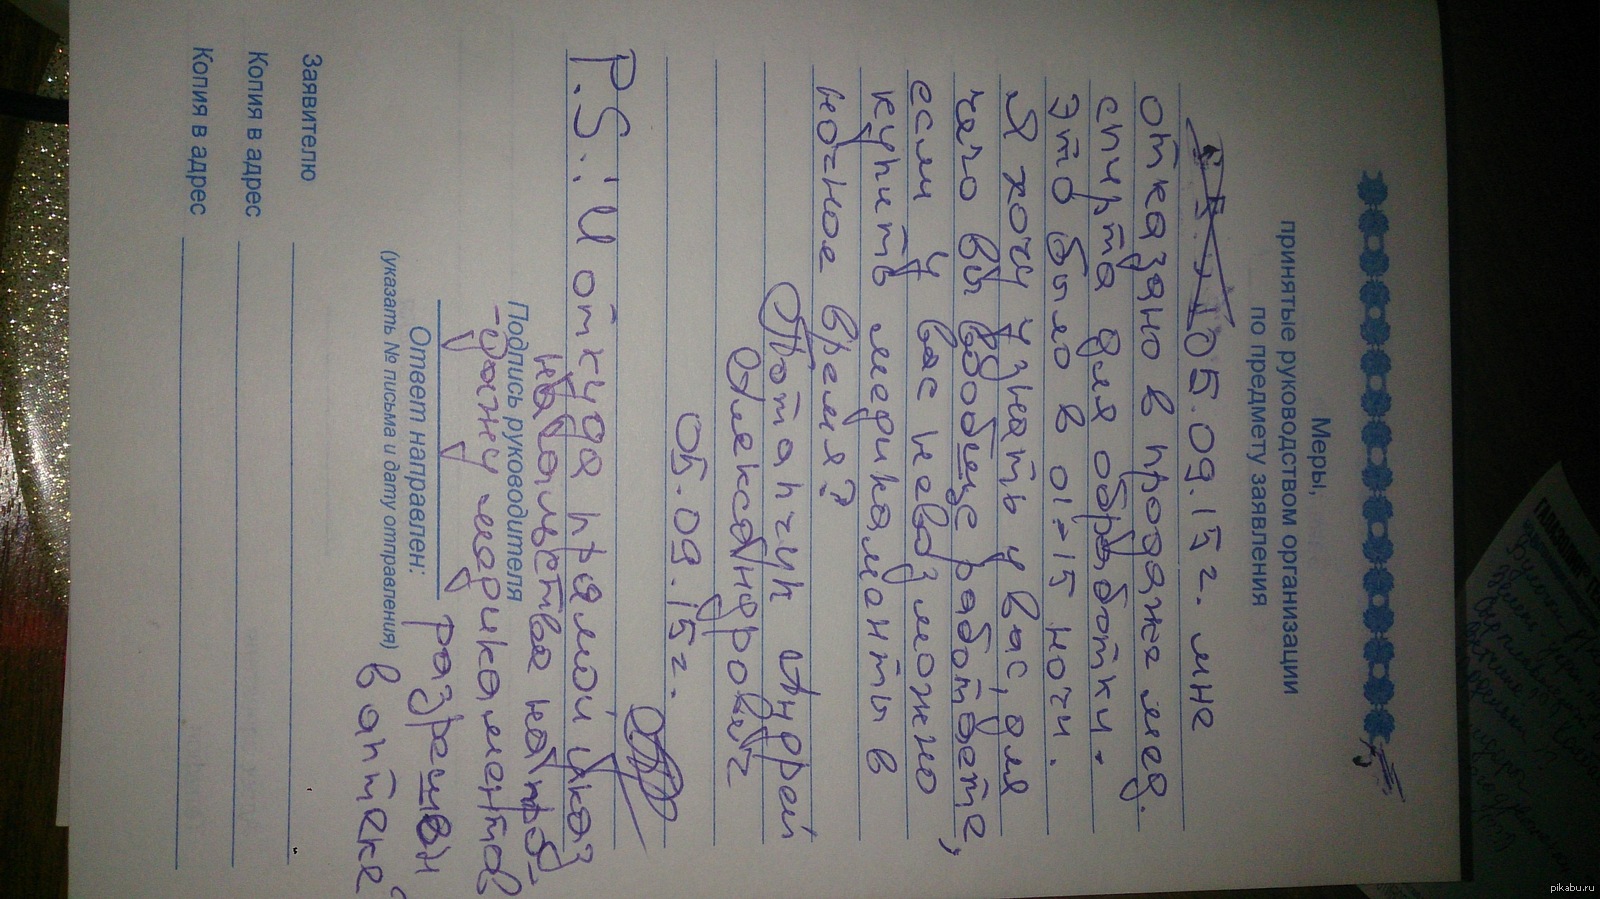 Меры,
принятые руководством организации
по предмету заявления
05.09.15г. мне
отказано в продаже мед.
спирта для обработки.
Это было в 01=15 ночи.
Я хочу узнать у вас, для
чего вы вообще работаете,
если у вас невозможно
купить медикаменты в
ночное время?
Потапчук Андрей
Александрович
05.09.15г.
P.S.: И откуда прямой указ
начальства на про-
Подпись руководителя
-дажу медикаментов
разрешён
в аптеке
Ответ направлен:
(указать № письма и дату отправления)
Заявителю
Копия в адрес
Копия в адрес
pikabu.ru